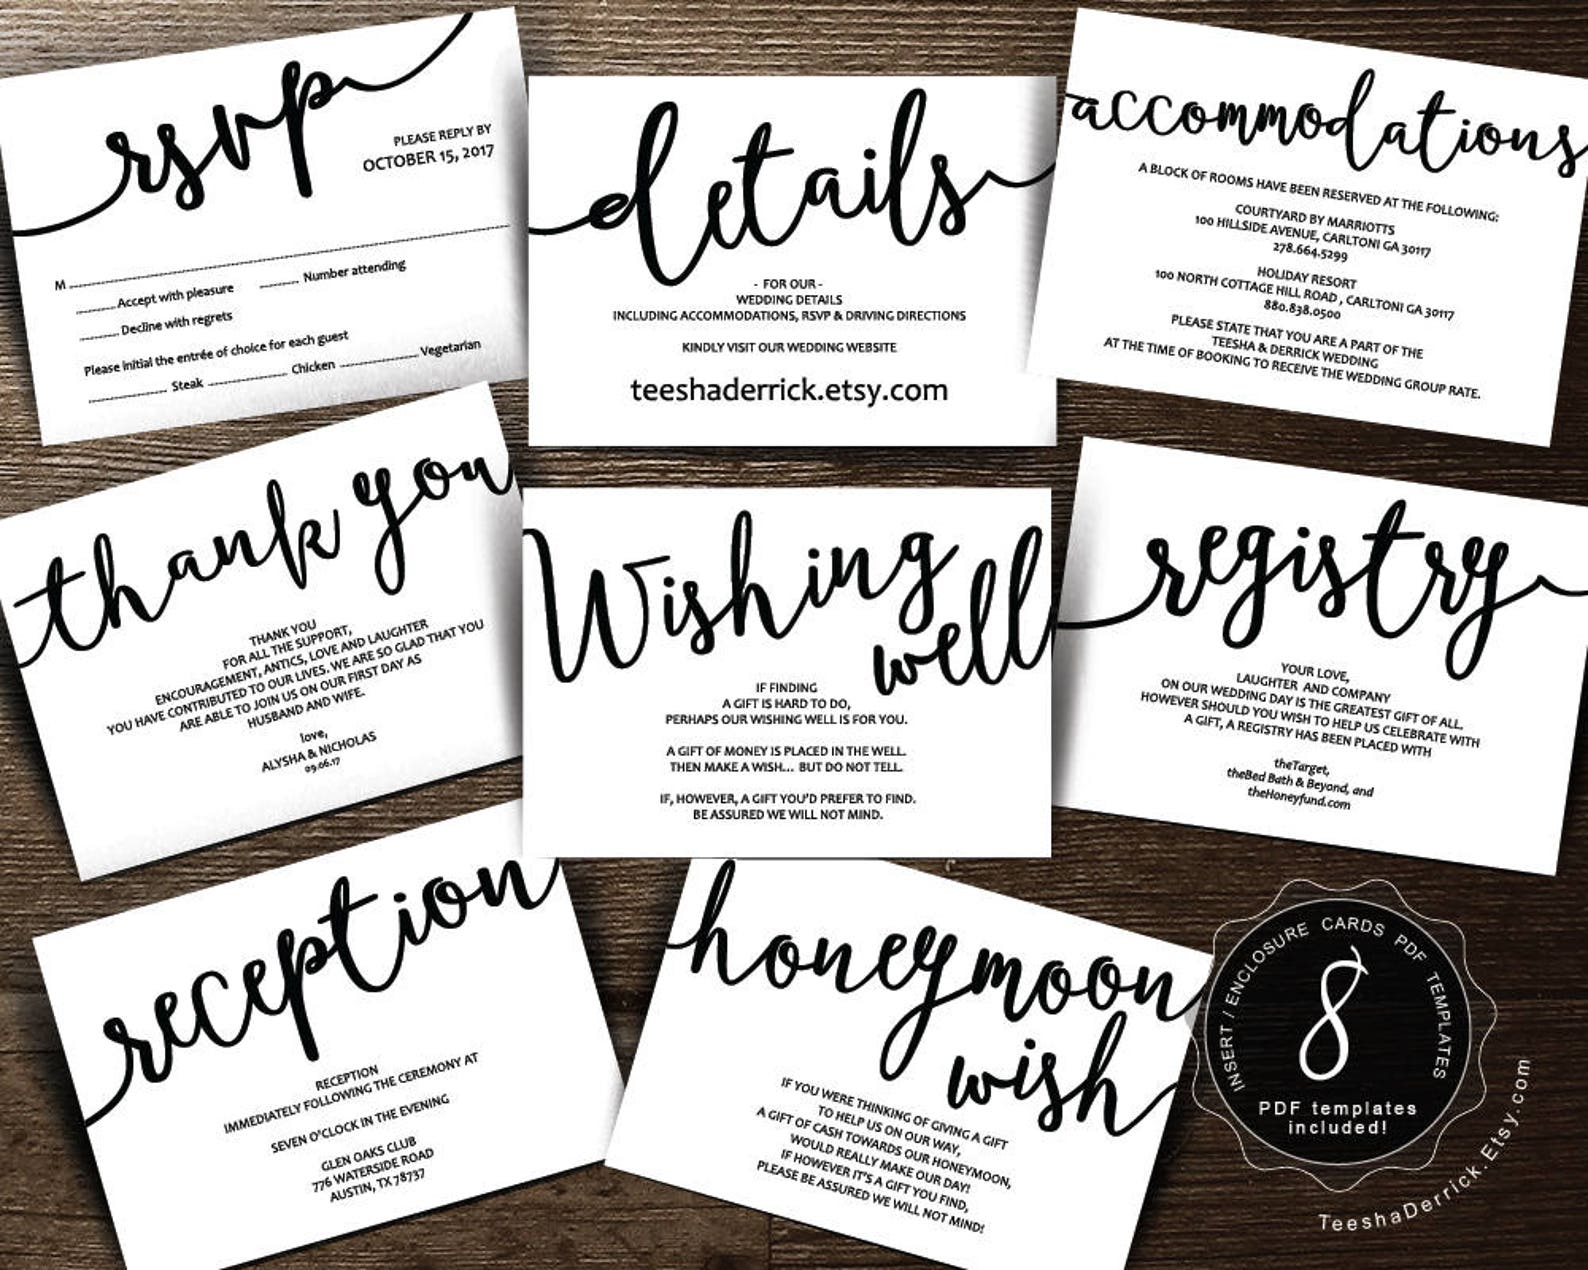 rsvp
PLEASE REPLY BY
OCTOBER 15, 2017
M
Accept with pleasure
Number attending
Decline with regrets
Please initial the entrée of choice for each guest
Steak
Chicken
Vegetarian
details
- FOR OUR -
WEDDING DETAILS
INCLUDING ACCOMMODATIONS, RSVP & DRIVING DIRECTIONS
KINDLY VISIT OUR WEDDING WEBSITE
teeshaderrick.etsy.com
accommodations
A BLOCK OF ROOMS HAVE BEEN RESERVED AT THE FOLLOWING:
COURTYARD BY MARRIOTTS
100 HILLSIDE AVENUE, CARLTONI GA 30117
278.664.5299
HOLIDAY RESORT
100 NORTH COTTAGE HILL ROAD , CARLTONI GA 30117
880.838.0500
PLEASE STATE THAT YOU ARE A PART OF THE
TEESHA & DERRICK WEDDING
AT THE TIME OF BOOKING TO RECEIVE THE WEDDING GROUP RATE.
thank you
THANK YOU
FOR ALL THE SUPPORT,
ENCOURAGEMENT, ANTICS, LOVE AND LAUGHTER
YOU HAVE CONTRIBUTED TO OUR LIVES. WE ARE SO GLAD THAT YOU
ARE ABLE TO JOIN US ON OUR FIRST DAY AS
HUSBAND AND WIFE.
love,
ALYSHA & NICHOLAS
09.06.17
Wishing
well
IF FINDING
A GIFT IS HARD TO DO,
PERHAPS OUR WISHING WELL IS FOR YOU.
A GIFT OF MONEY IS PLACED IN THE WELL.
THEN MAKE A WISH... BUT DO NOT TELL.
IF, HOWEVER, A GIFT YOU'D PREFER TO FIND.
BE ASSURED WE WILL NOT MIND.
registry
YOUR LOVE,
LAUGHTER AND COMPANY
ON OUR WEDDING DAY IS THE GREATEST GIFT OF ALL.
HOWEVER SHOULD YOU WISH TO HELP US CELEBRATE WITH
A GIFT, A REGISTRY HAS BEEN PLACED WITH
theTarget,
theBed Bath & Beyond, and
theHoneyfund.com
reception
RECEPTION
IMMEDIATELY FOLLOWING THE CEREMONY AT
SEVEN O'CLOCK IN THE EVENING
GLEN OAKS CLUB
776 WATERSIDE ROAD
AUSTIN, TX 78737
honeymoon
wish
IF YOU WERE THINKING OF GIVING A GIFT
TO HELP US ON OUR WAY,
A GIFT OF CASH TOWARDS OUR HONEYMOON,
WOULD REALLY MAKE OUR DAY!
IF HOWEVER IT'S A GIFT YOU FIND,
PLEASE BE ASSURED WE WILL NOT MIND!
INSERT / ENCLOSURE CARDS PDF TEMPLATES
8
PDF templates
included!
TeeshaDerrick.Etsy.com